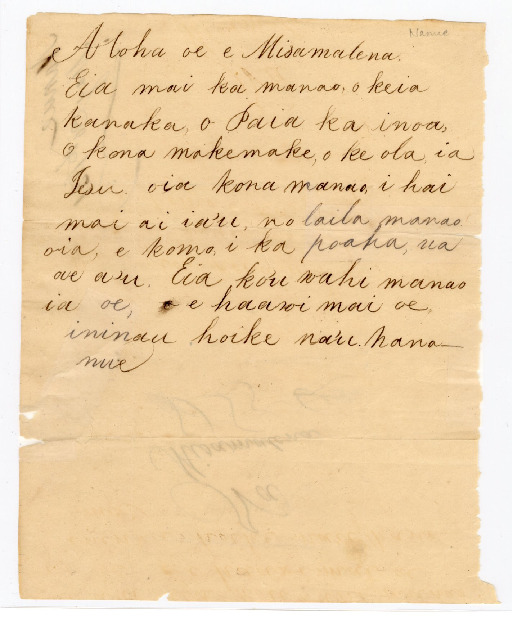 Nanue
Aloha oe e Misamalena.
Eia mai ka manao, o keia
kanaka, o Paia ka inoa,
O kona makemake, o ke ola, ia
Jesu. oia kona manao, i hai
mai ai ia'u, no laila manao
oia, e komo, i ka poaha, ua
ae a'u. Eia ko'u wahi manao
ia oe, e haawi mai oe,
ininau hoike na'u. Nana
nue
Misamalena
Na